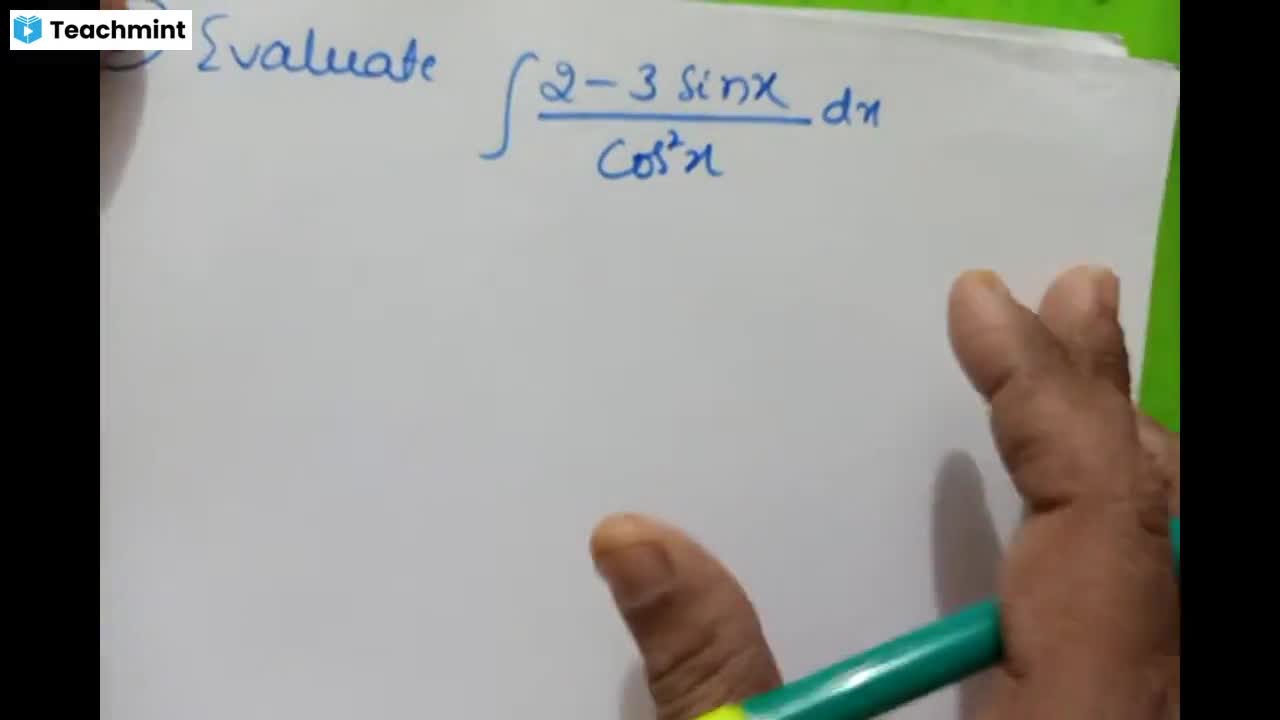 Teachmint
Evaluate ∫ (2 - 3 sinx)/(cos²x) dx